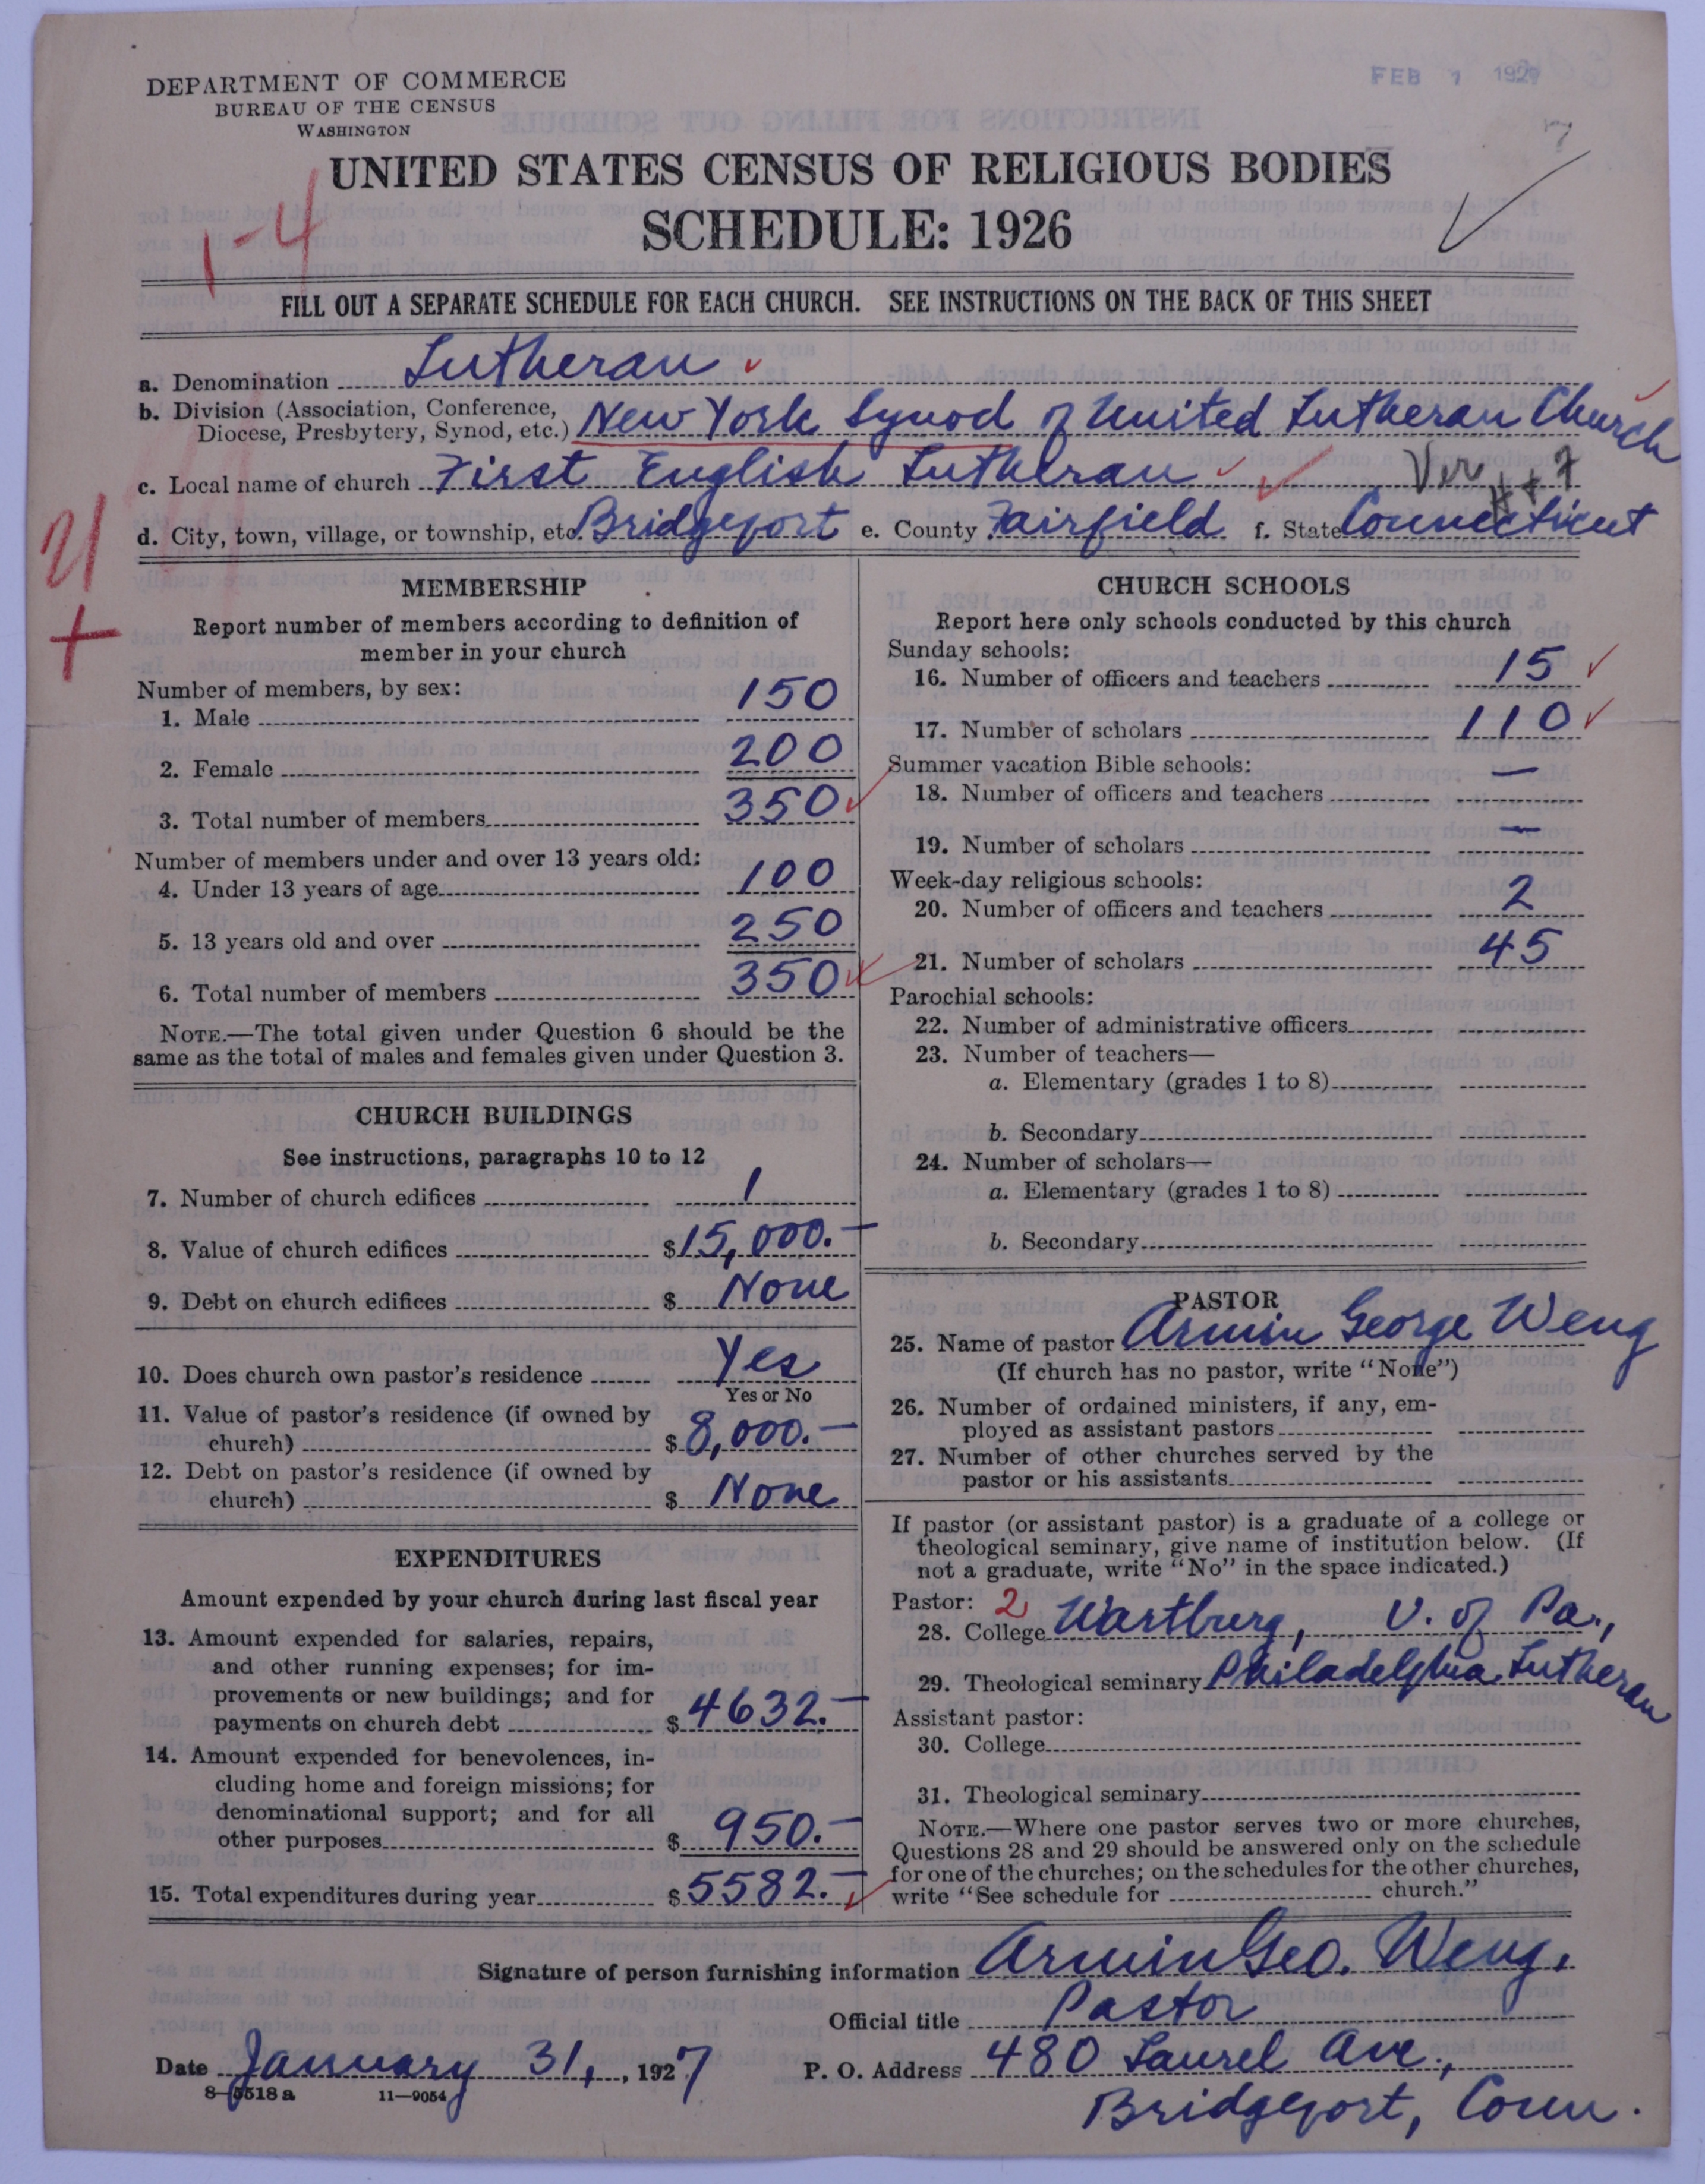 DEPARTMENT OF COMMERCE
BUREAU OF THE CENSUS
WASHINGTON
FEB 1 1927
UNITED STATES CENSUS OF RELIGIOUS BODIES
SCHEDULE: 1926
1-4
FILL OUT A SEPARATE SCHEDULE FOR EACH CHURCH. SEE INSTRUCTIONS ON THE BACK OF THIS SHEET
a. Denomination Lutheran
b. Division (Association, Conference, Diocese, Presbytery, Synod, etc.) New York Synod of United Lutheran Church
c. Local name of church First English Lutheran Ver
d. City, town, village, or township, etc. Bridgeport e. County Fairfield f. State Connecticut
MEMBERSHIP
Report number of members according to definition of
member in your church
Number of members, by sex:
1. Male 150
2. Female 200
3. Total number of members 350
Number of members under and over 13 years old:
4. Under 13 years of age 100
5. 13 years old and over 250
6. Total number of members 350
NOTE.—The total given under Question 6 should be the
same as the total of males and females given under Question 3.
CHURCH BUILDINGS
See instructions, paragraphs 10 to 12
7. Number of church edifices 1
8. Value of church edifices $15,000.—
9. Debt on church edifices $ None
10. Does church own pastor's residence Yes
Yes or No
11. Value of pastor's residence (if owned by
church) $ 8,000.—
12. Debt on pastor's residence (if owned by
church) $ None
EXPENDITURES
Amount expended by your church during last fiscal year
13. Amount expended for salaries, repairs,
and other running expenses; for im-
provements or new buildings; and for
payments on church debt $ 4632.—
14. Amount expended for benevolences, in-
cluding home and foreign missions; for
denominational support; and for all
other purposes $ 950.—
15. Total expenditures during year $ 5582.—
CHURCH SCHOOLS
Report here only schools conducted by this church
Sunday schools:
16. Number of officers and teachers 15
17. Number of scholars 110
Summer vacation Bible schools:
18. Number of officers and teachers —
19. Number of scholars —
Week-day religious schools:
20. Number of officers and teachers 2
21. Number of scholars 45
Parochial schools:
22. Number of administrative officers
23. Number of teachers—
a. Elementary (grades 1 to 8)
b. Secondary
24. Number of scholars—
a. Elementary (grades 1 to 8)
b. Secondary
PASTOR
25. Name of pastor Armin George Weng
(If church has no pastor, write "None")
26. Number of ordained ministers, if any, em-
ployed as assistant pastors
27. Number of other churches served by the
pastor or his assistants
If pastor (or assistant pastor) is a graduate of a college or
theological seminary, give name of institution below. (If
not a graduate, write "No" in the space indicated.)
Pastor: 2
28. College Wartburg, U. of Pa.,
29. Theological seminary Philadelphia Lutheran
Assistant pastor:
30. College
31. Theological seminary
NOTE.—Where one pastor serves two or more churches,
Questions 28 and 29 should be answered only on the schedule
for one of the churches; on the schedules for the other churches,
write "See schedule for church."
Signature of person furnishing information Armin Geo. Weng.
Official title Pastor
Date January 31, 1927 P. O. Address 480 Laurel Ave.,
8-5518a 11-9054
Bridgeport, Conn.